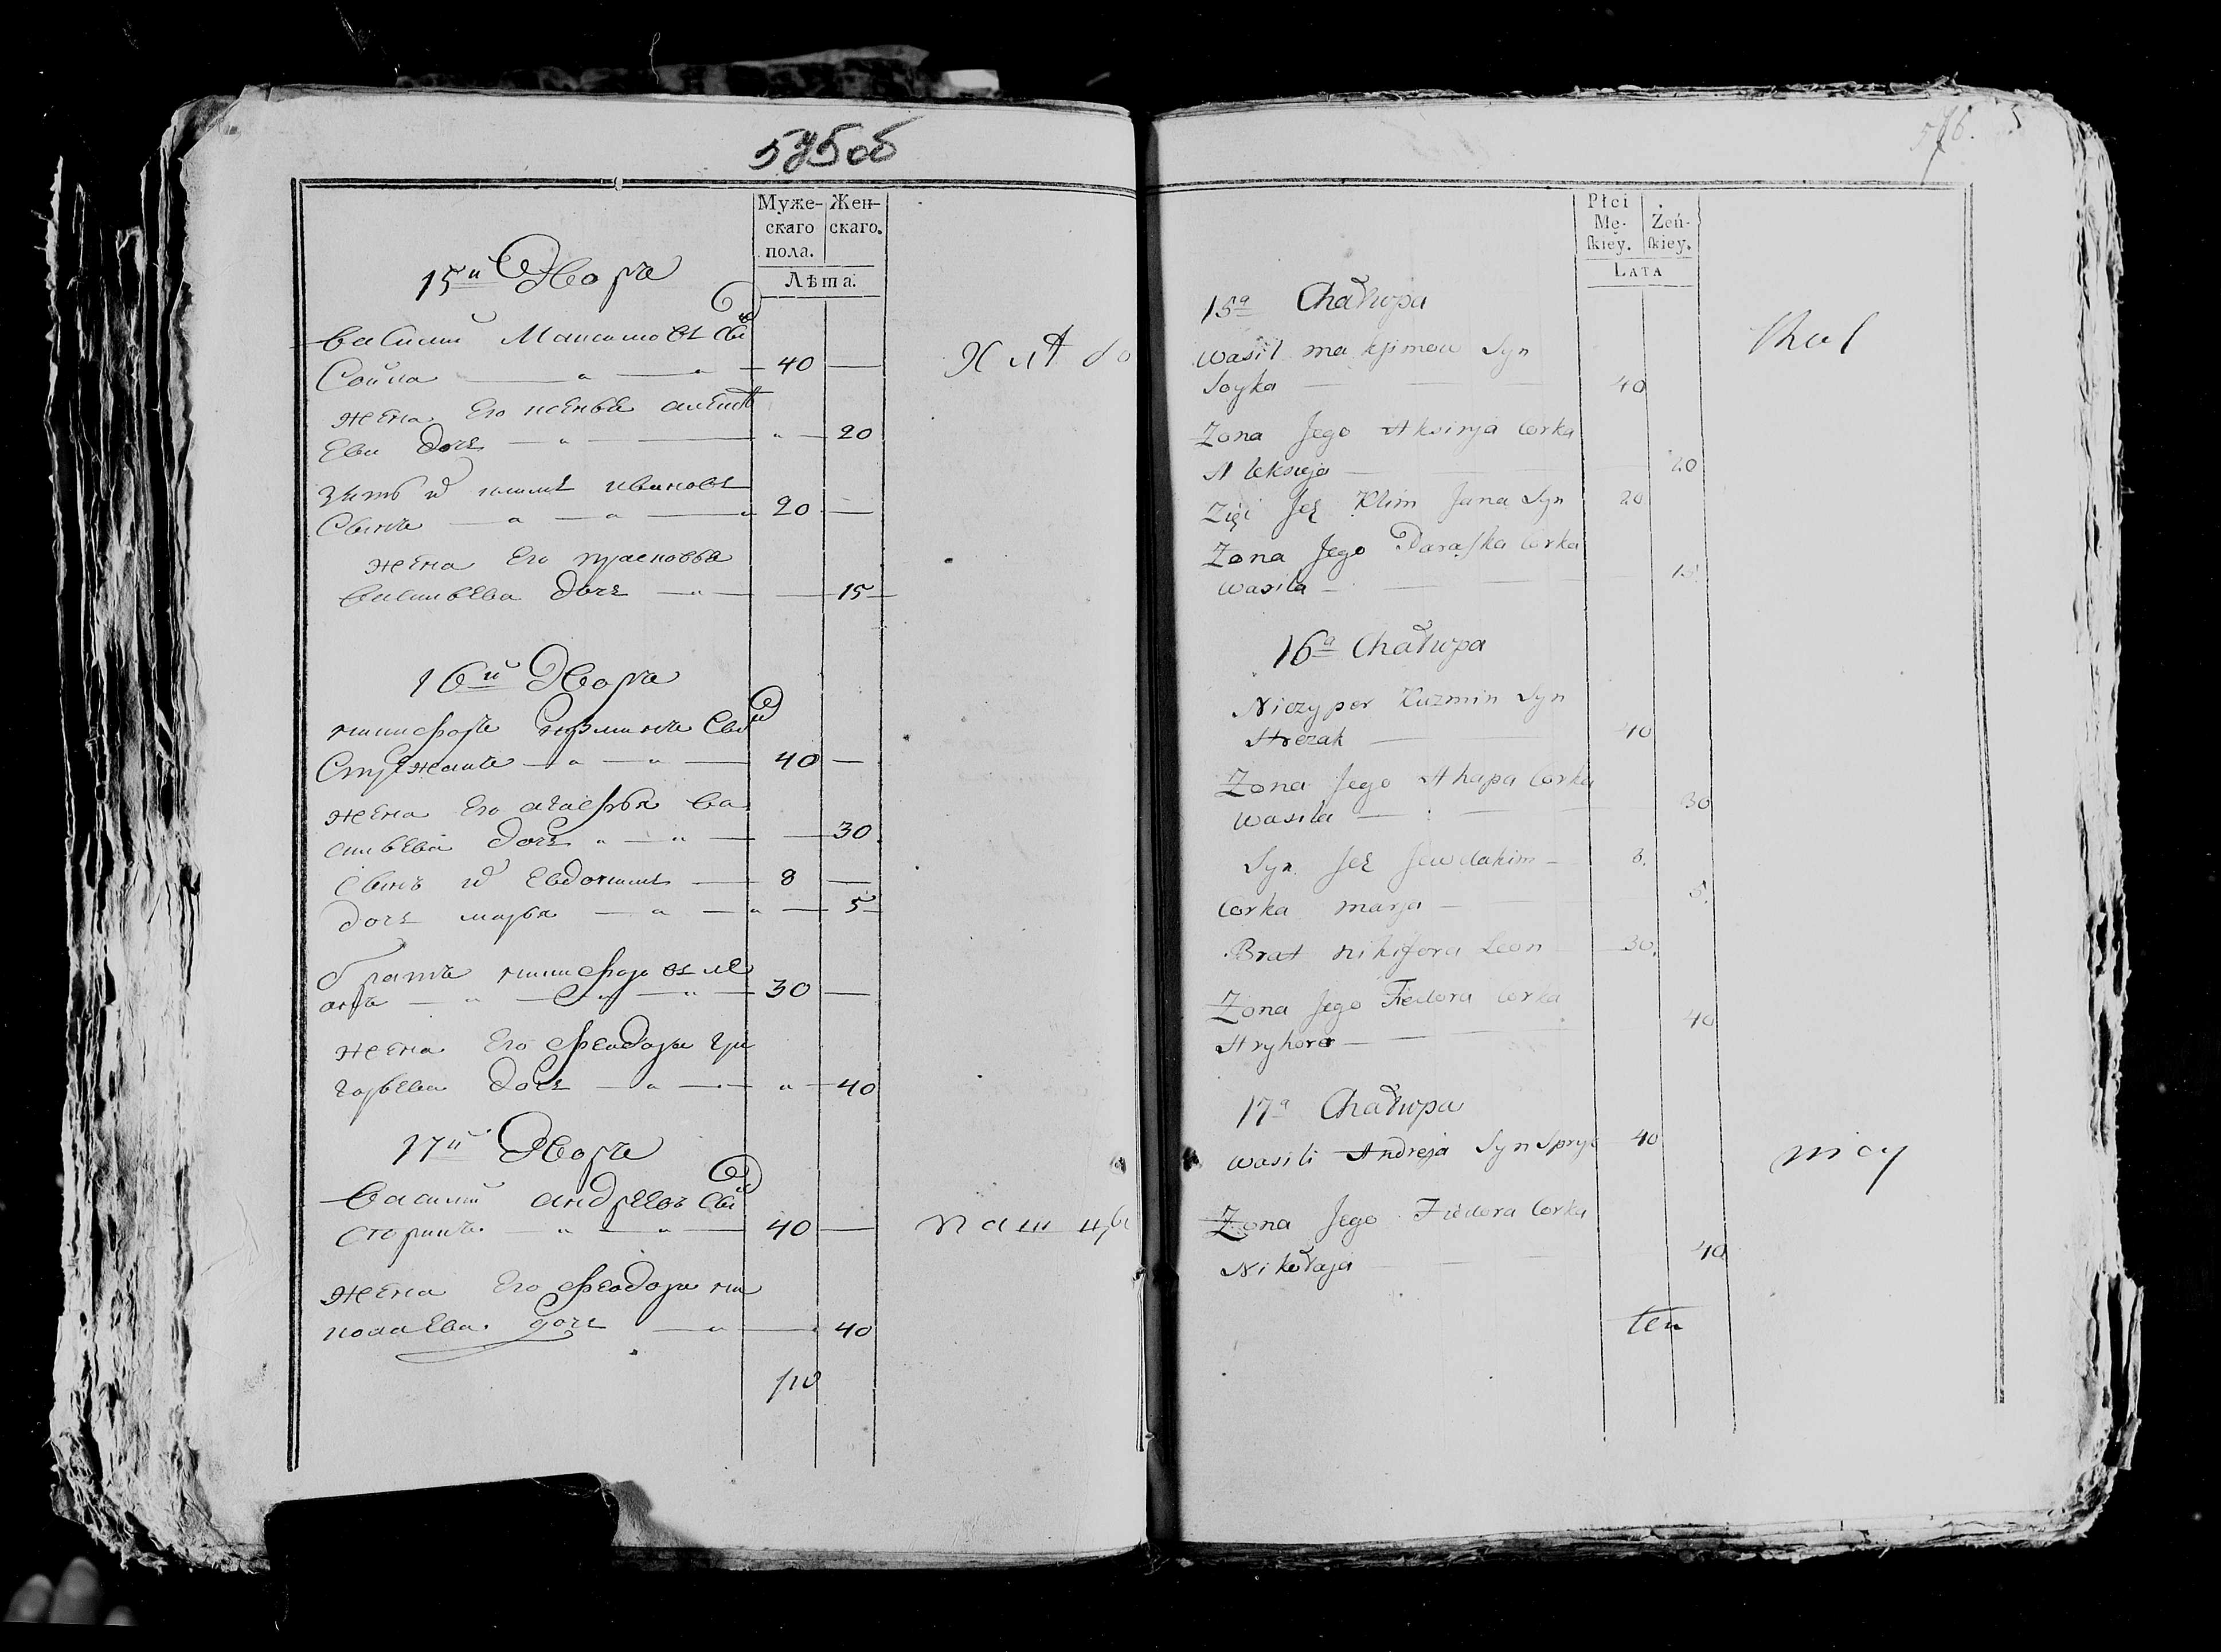 575об
Муже-
скаго
пола.
Жен-
скаго.
Лѣта.
15й Дворъ
Василий Максимовъ Сы
Сойка 40
жена Его Ксенья алекѣ
Ева дочь 20
зять Климъ ивановъ
Сынъ 20
жена Его прасковья
васильева дочь 15
16й Дворъ
никифоръ кузминъ
40
жена Его Ва
сильева дочь 30
Сынъ Евдокимъ 8
дочь марья 5
братъ никифоровъ ле
онъ 30
жена Его феодора гри
горьева дочь 40
17й Дворъ
Василий андреевъ
40
жена Его феодора ни
колаева дочь 40
576.
Płci
Mę-
ſkiey.
Żeń-
ſkiey.
LATA
15a Chałupa
Wasil makſimow Syn
Soyka 40
Zona Jego Aksinja Corka
Alekseja 20
Zięć Jeg Klim Jana Syn 20
Zona Jego Paraſka Corka
Wasila 15
16a Chałupa
Niczypor Kuzmin Syn
Strezak 40
Zona Jego Ahapa Corka
Wasila 30
Syn Jeg Jewdakim 8.
Corka marja 5.
Brat nikifora Leon 30.
Zona Jego Fiedora Corka
Hryhora 40
17a Chałupa
Wasili Andreja Syn 40
Zona Jego Fiedora Corka
Nikołaja 40